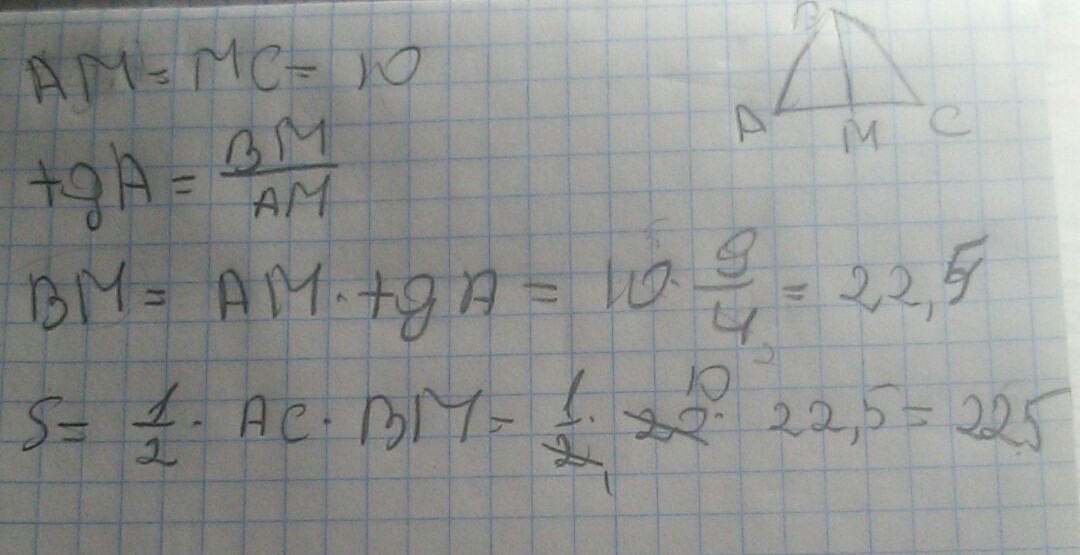 AM = MC = 10
B
A M C
tgA = BM/AM
BM = AM · tgA = 10 · 9/4 = 22,5
S = 1/2 · AC · BM = 1/2 · 20 · 22,5 = 225
10
1